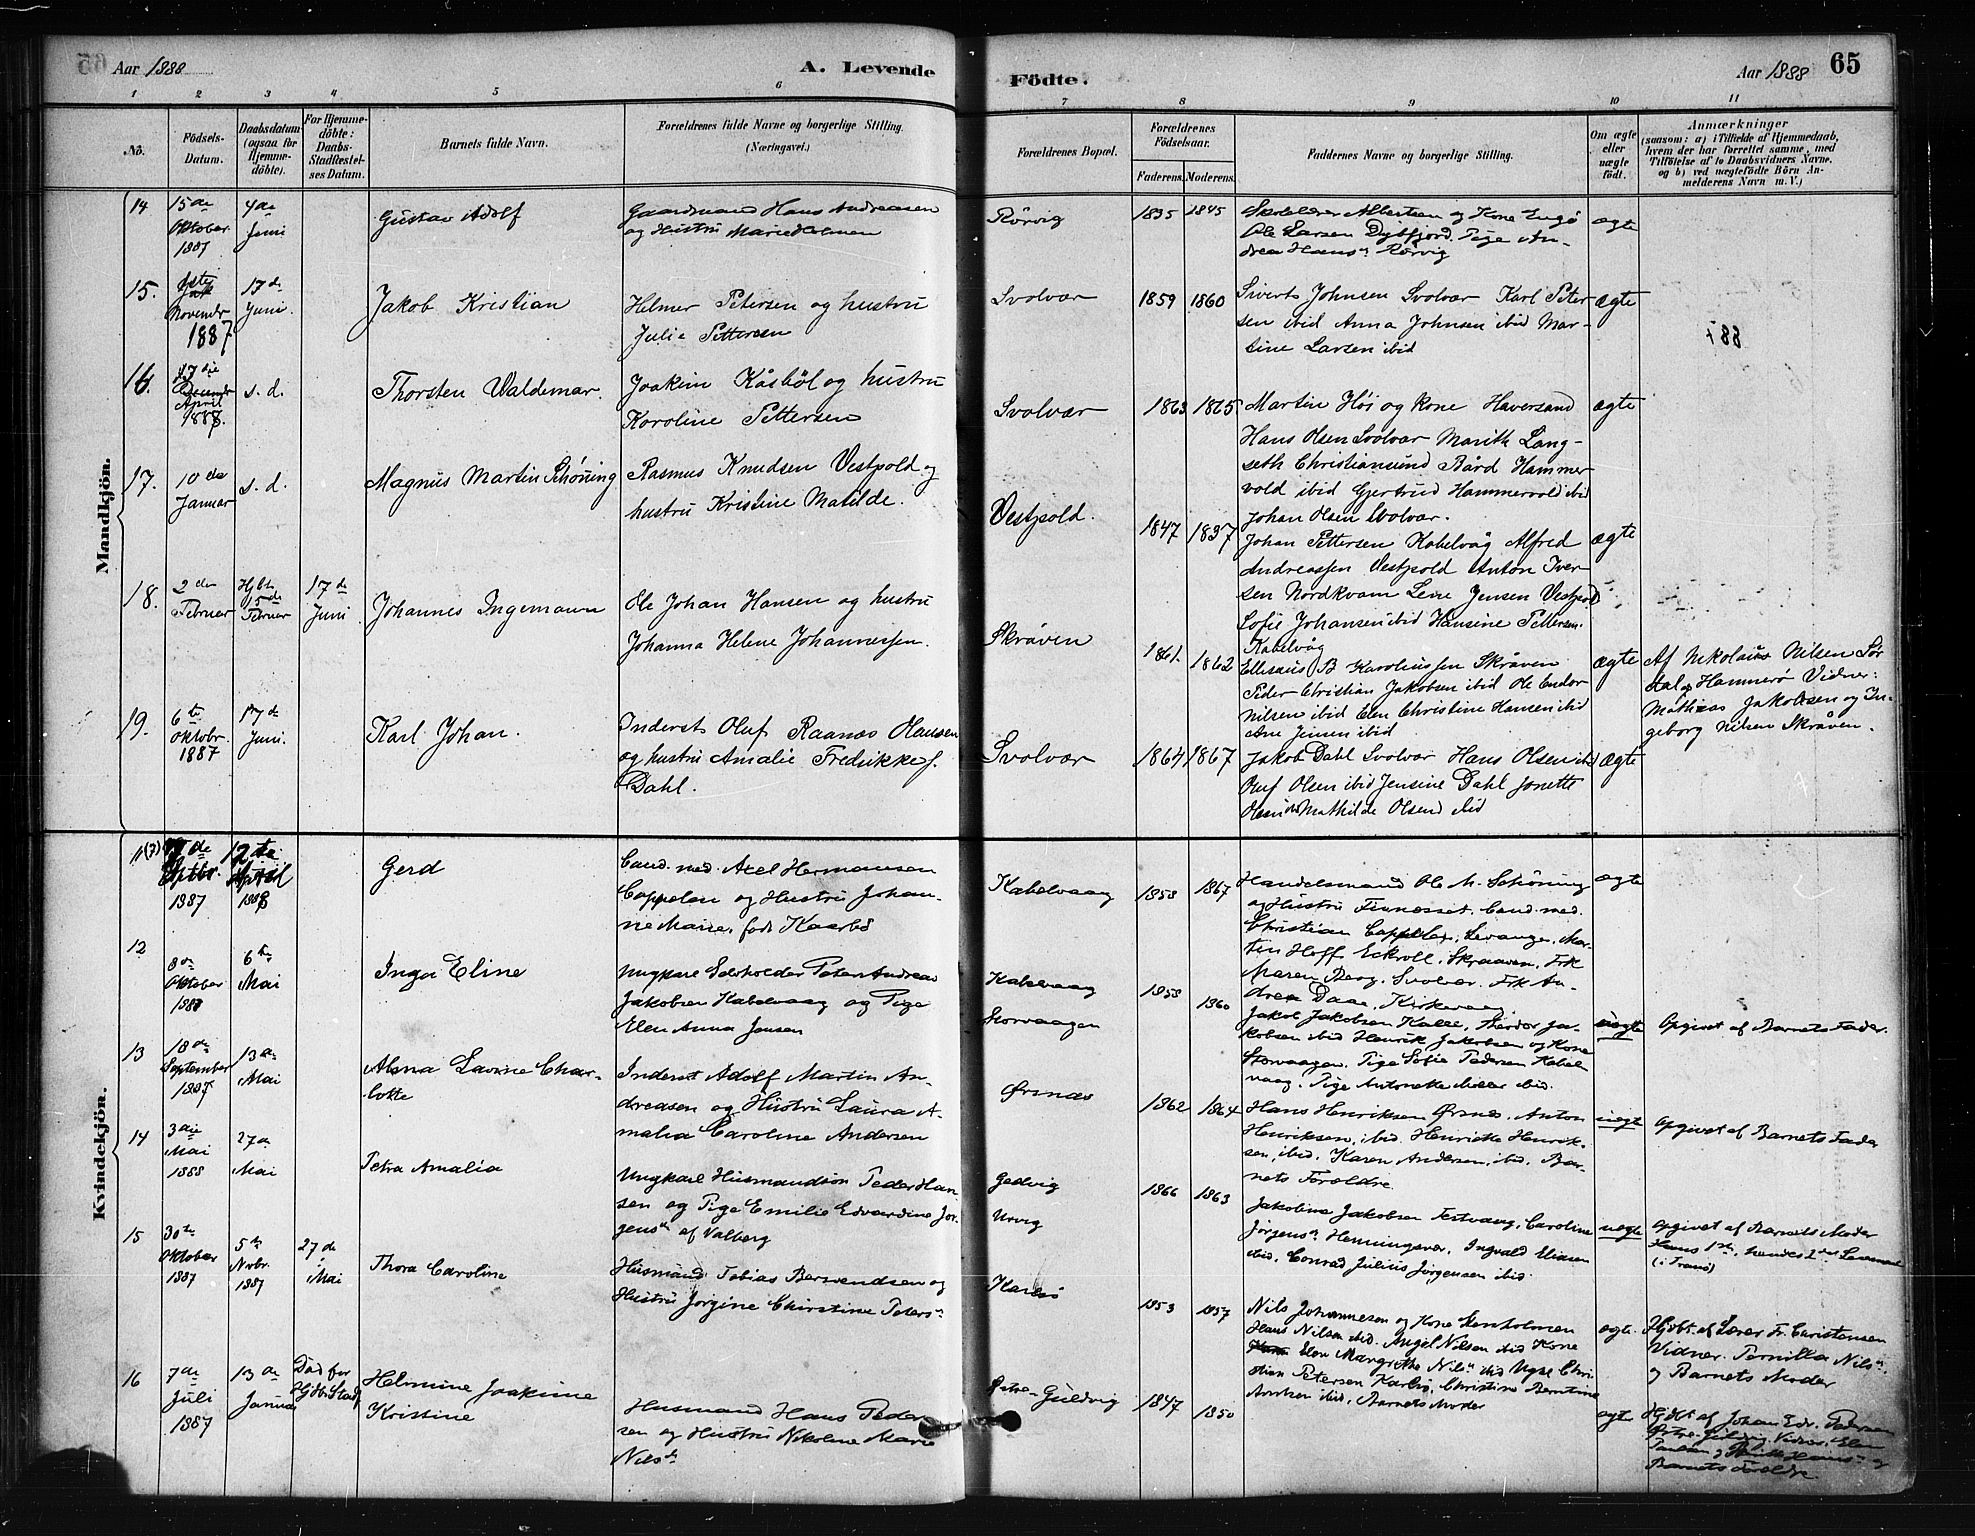 65
Aar 1888
A. Levende
Födte.
Aar 1888
65
1 2 3 4 5 6
7 8 9 10 11
No.
Födsels-
Datum.
Daabsdatum
(ogsaa for
Hjemme-
döbte).
For Hjemme-
döbte:
Daabs-
Stadfestel-
ses Datum.
Barnets fulde Navn.
Forældrenes fulde Navne og borgerlige Stilling.
(Næringsvei.)
Forældrenes Bopæl.
Forældrenes
Födselsaar.
Faderens. Moderens.
Faddernes Navne og borgerlige Stilling.
Om ægte
eller
uægte
födt.
Anmærkninger
(saasom: a) i Tilfælde af Hjemmedaab,
hvem der har forrettet samme, med
Tilföielse af to Daabsvidners Navne.
og b) ved uægtefödte Börn An-
melderens Navn m. V.)
Mandkjön.
14
15de
Oktober
1887
4de
Juni
Gustav Adolf
Gaardmand Hans Andreasen
og Hustru Marie Holmen
Rörvig
1835 1845
Skolelærer Albertsen og Kone Engö
Ole Larsen Dybfjord. Pige An-
drea Hansn Rörvig
ægte
15.
Novembr
1887
17de
Juni.
Jakob Kristian
Helmer Petersen og hustru
Julie Pettersen
Svolvær
1859 1860
Siverts Johnsen Svolvær Karl Peter
sen ibid Anna Johnsen ibid Mar-
tine Larsen ibid
ægte
16.
17die
April
1888.
s. d.
Thorsten Valdemar.
Joakim Kåsböl og hustru
Karoline Pettersen
Svolvær
1863 1865
Martin Höi og Kone Haversand
Hans Olsen Svolvær Marith Lang-
seth Christiansund Bård Hammer
vold ibid Gjertrud Hammervold ibid
Johan Olsen Svolvær.
ægte
17.
10de
Januar
s. d.
Magnus Martin Schöning
Rasmus Knudsen Vestpold og
hustru Kristine Matilde.
Vestpold.
1847 1837
Johan Pettersen Kabelvåg Alfred
Andreassen Vestpold Anton Iver
sen Nordkvam Lene Jensen Vestpold
Sofie Johansen ibid Hansine Pettersen
Kabelvåg
ægte
18.
2den
Februar
Hjbt
15de
Februar
17de
Juni
Johannes Ingemann
Ole Johan Hansen og hustru
Johanna Helene Johannessen.
Skråven
1861. 1862
Ellisæus B Karoliussen Skråven
Peder Christian Jakobsen ibid Ole Endor
Nilsen ibid Elen Christine Hansen ibid
Ane Jensen ibid
ægte
Af Nikolaus Nilsen Sör
dal på Hammerö Vidner:
Mathias Jakobsen og In-
geborg Nilsen Skråven.
19.
6te
Oktobr.
1887
17de
Juni.
Karl Johan.
Inderst Oluf Raanæs Hansen
og hustru Amalie Fredrikke f.
Dahl.
Svolvær
1864 1867
Jakob Dahl Svolvær Hans Olsen ibid
Oluf Olsen ibid Jensine Dahl Jonette
Olsen ibid Mathilde Olsen ibid
ægte
Kvindekjön.
11(7)
Septbr.
1887
12te
April
1888
Gerd
Cand. med. Axel Hermansen
Cappelen og Hustru Johan-
ne Marie, født Kaarbö
Kabelvaag
1858 1867
Handelsmand Ole M. Schöning
og Hustru Finnesset. Cand. med.
Christian Cappelen, Levanger, Mar-
tin Hoff Eckroll, Skraaven, Frk
Maren Berg, Svolvær. Frk An-
drea Daae, Kirkevaag
ægte
12
8de
Oktober
1887
6te
Mai
Inga Eline
Ungkarl Selvholder Peter Andreas
Jakobsen Kabelvaag og Pige
Elen Anna Jensen
Kabelvaag
Storvaagen
1858 1860
Jakob Jakobsen Kalle, Theodor Ja-
kobsen ibid Henrik Jakobsen og Kone
Storvaagen. Pige Sofie Pedersen Kabel
vaag. Pige Antonette Möller ibid.
uægte
Opgivet af Barnets Fader.
13
18de
September
1887
13de
Mai
Alma Lavine Char-
lotte
Inderst Adolf Martin An-
dreasen og Hustru Laura A-
malia Caroline Andersen
Örsnæs
1862 1864
Hans Henriksen Örsnes. Anton
Henriksen, ibid. Henrikke Henrik-
sen, ibid. Karen Andersen, ibid. Bar-
nets Forældre.
uægte
Opgivet af Barnets Fader
14
3die
Mai
1888
27de
Mai
Petra Amalia
Ungkarl Husmandssön Peder Han
sen og Pige Emilie Edvardine Jör-
gensn af Valberg
Gedvig
Urvig
1866 1863
Jakobine Jakobsen Festvaag, Caroline
Jörgensn Henningsvær, Ingvald Eliasen
ibid. Conrad Julius Jörgensen ibid.
uægte
Opgivet af Barnets Moder
Hans 1ste, hendes 2det Leiermaal
(i Tranö)
15
30te
Oktober
1887
5te
Novbr.
1887
27de
Mai
Thora Caroline
Husmand Tobias Berendsen og
Hustru Jörgine Christine Petersn
Karlsö
1853 1857
Nils Johannesen og Kone Stenholmen
Hans Nilsen ibid. Angel Nilsen ibid Kone
Elen Margrethe Nilsn ibid Ungk. Chri-
stian Petersen Karlsö, Christine Berntine
Arntsen ibid, Barnets Moder
ægte.
Hjdbt. af Lærer Fr. Christensen
Vidner. Pernilla Nilsn
og Barnets Moder
16
7de
Juli
1887
13de
Januar
Död för
Hjdb. Stadf.
Helmine Joakime
Kristine
Husmand Hans Peder
sen og Hustru Nikoline Marie
Nilsdr
Östre-Guldvig
1847 1850
ægte
Hjdbt af Johan Edv. Pedersen
Östre-Guldvig. Vidner. Elen
Barnets Forældre.